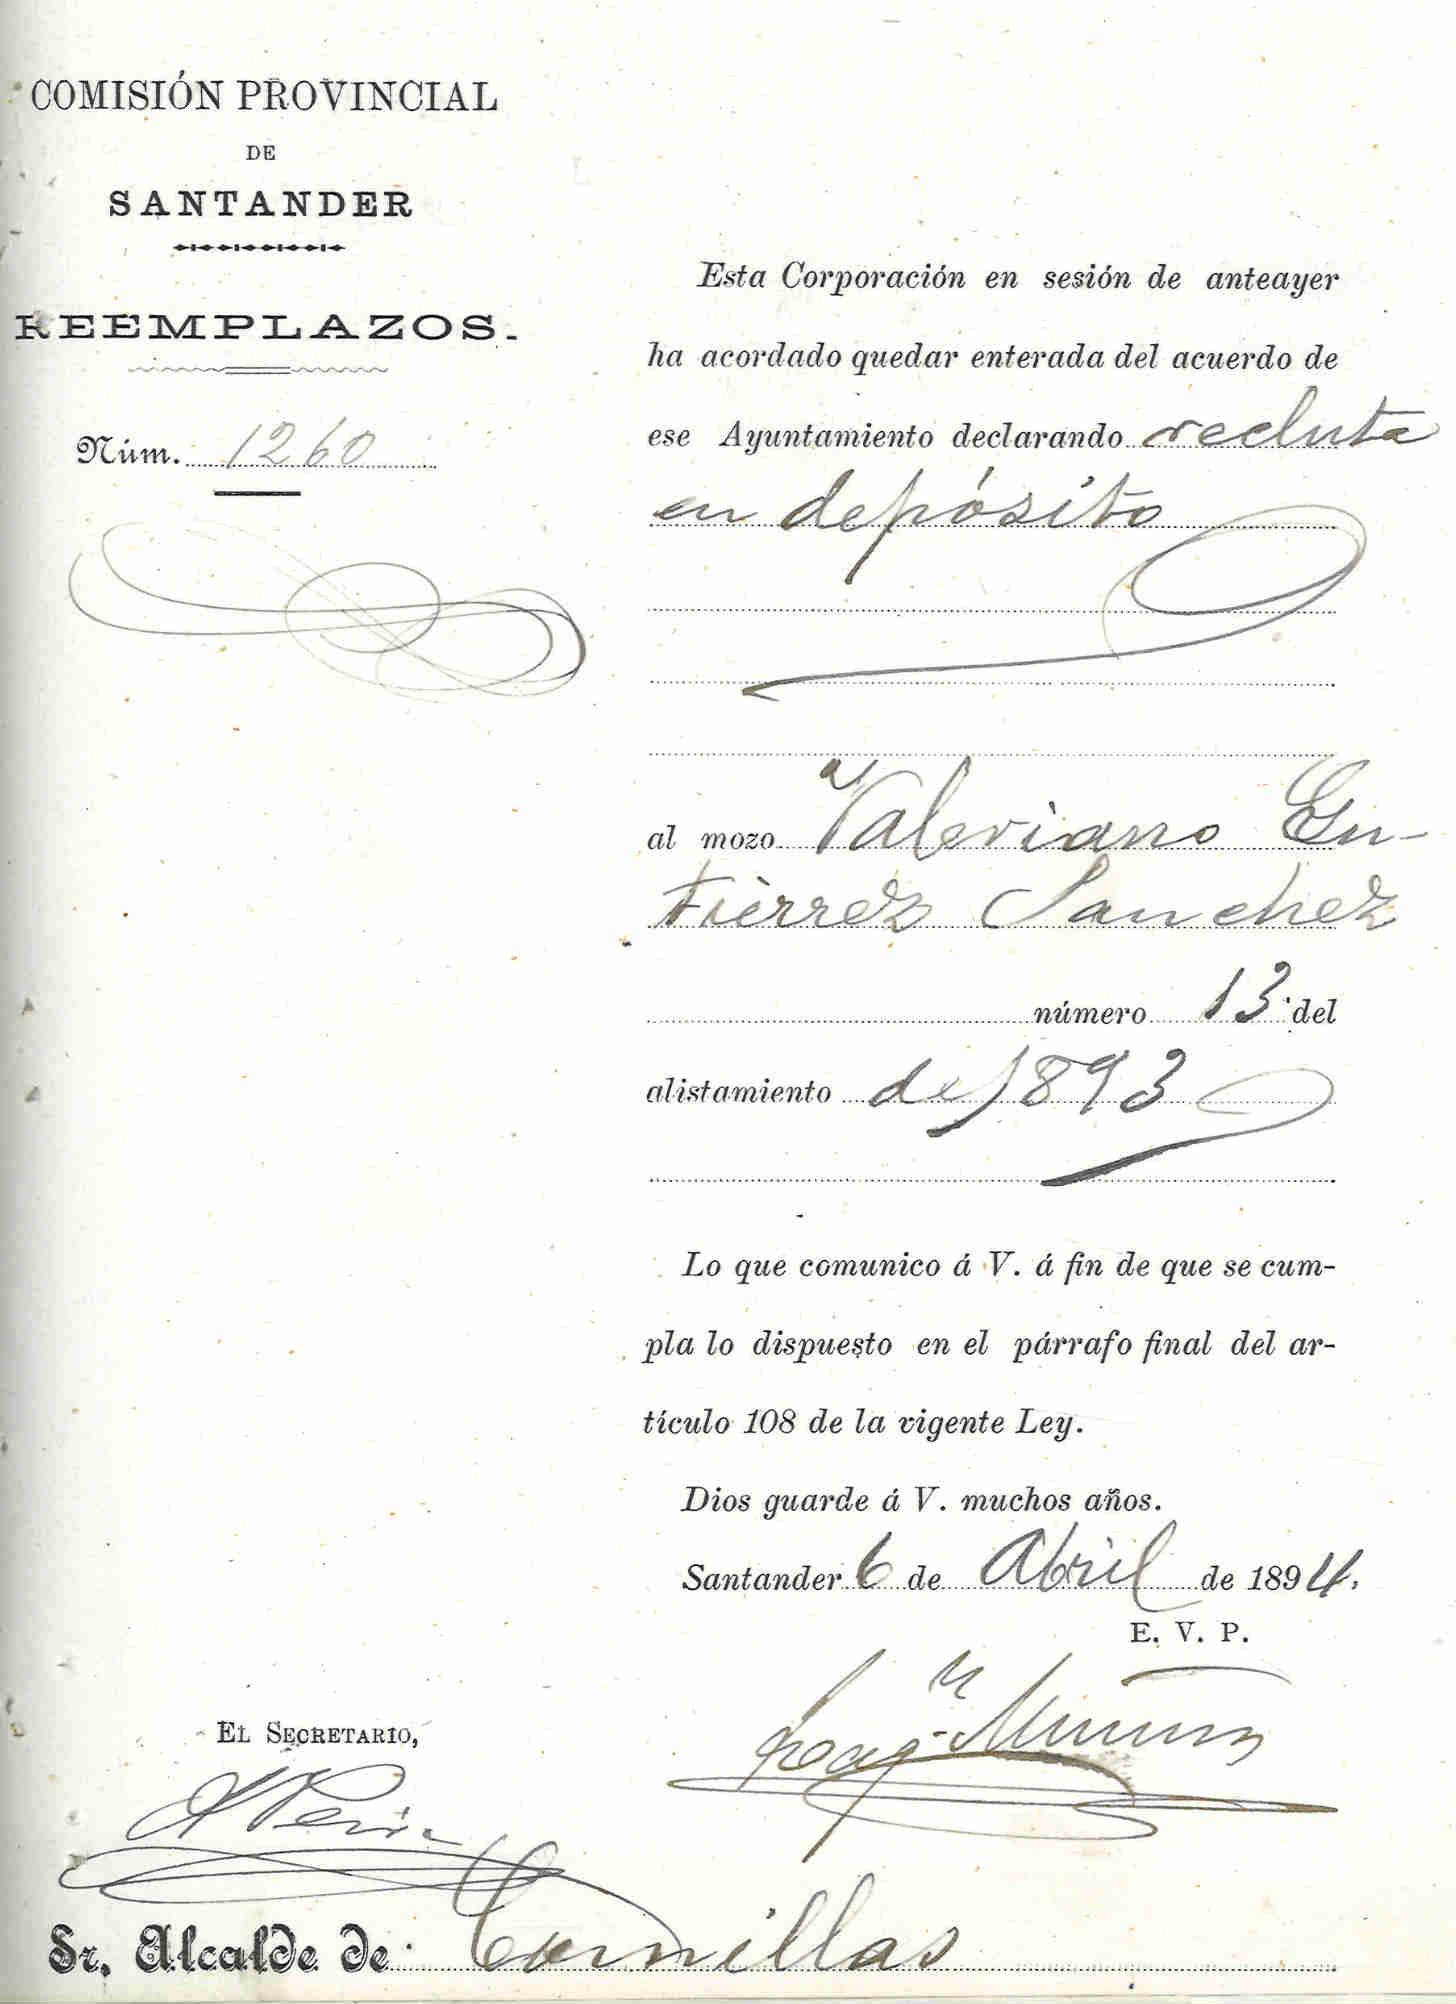 COMISIÓN PROVINCIAL
DE
SANTANDER
REEMPLAZOS.
Núm. 1260
Esta Corporación en sesión de anteayer
ha acordado quedar enterada del acuerdo de
ese Ayuntamiento declarando recluta
en depósito
al mozo Valeriano Gu-
tièrrez Sanchez
número 13 del
alistamiento de 1893
Lo que comunico á V. á fin de que se cum-
pla lo dispuesto en el párrafo final del ar-
tículo 108 de la vigente Ley.
Dios guarde á V. muchos años.
Santander 6 de Abril de 1894.
E. V. P.
EL SECRETARIO,
Sr. Alcalde de Comillas